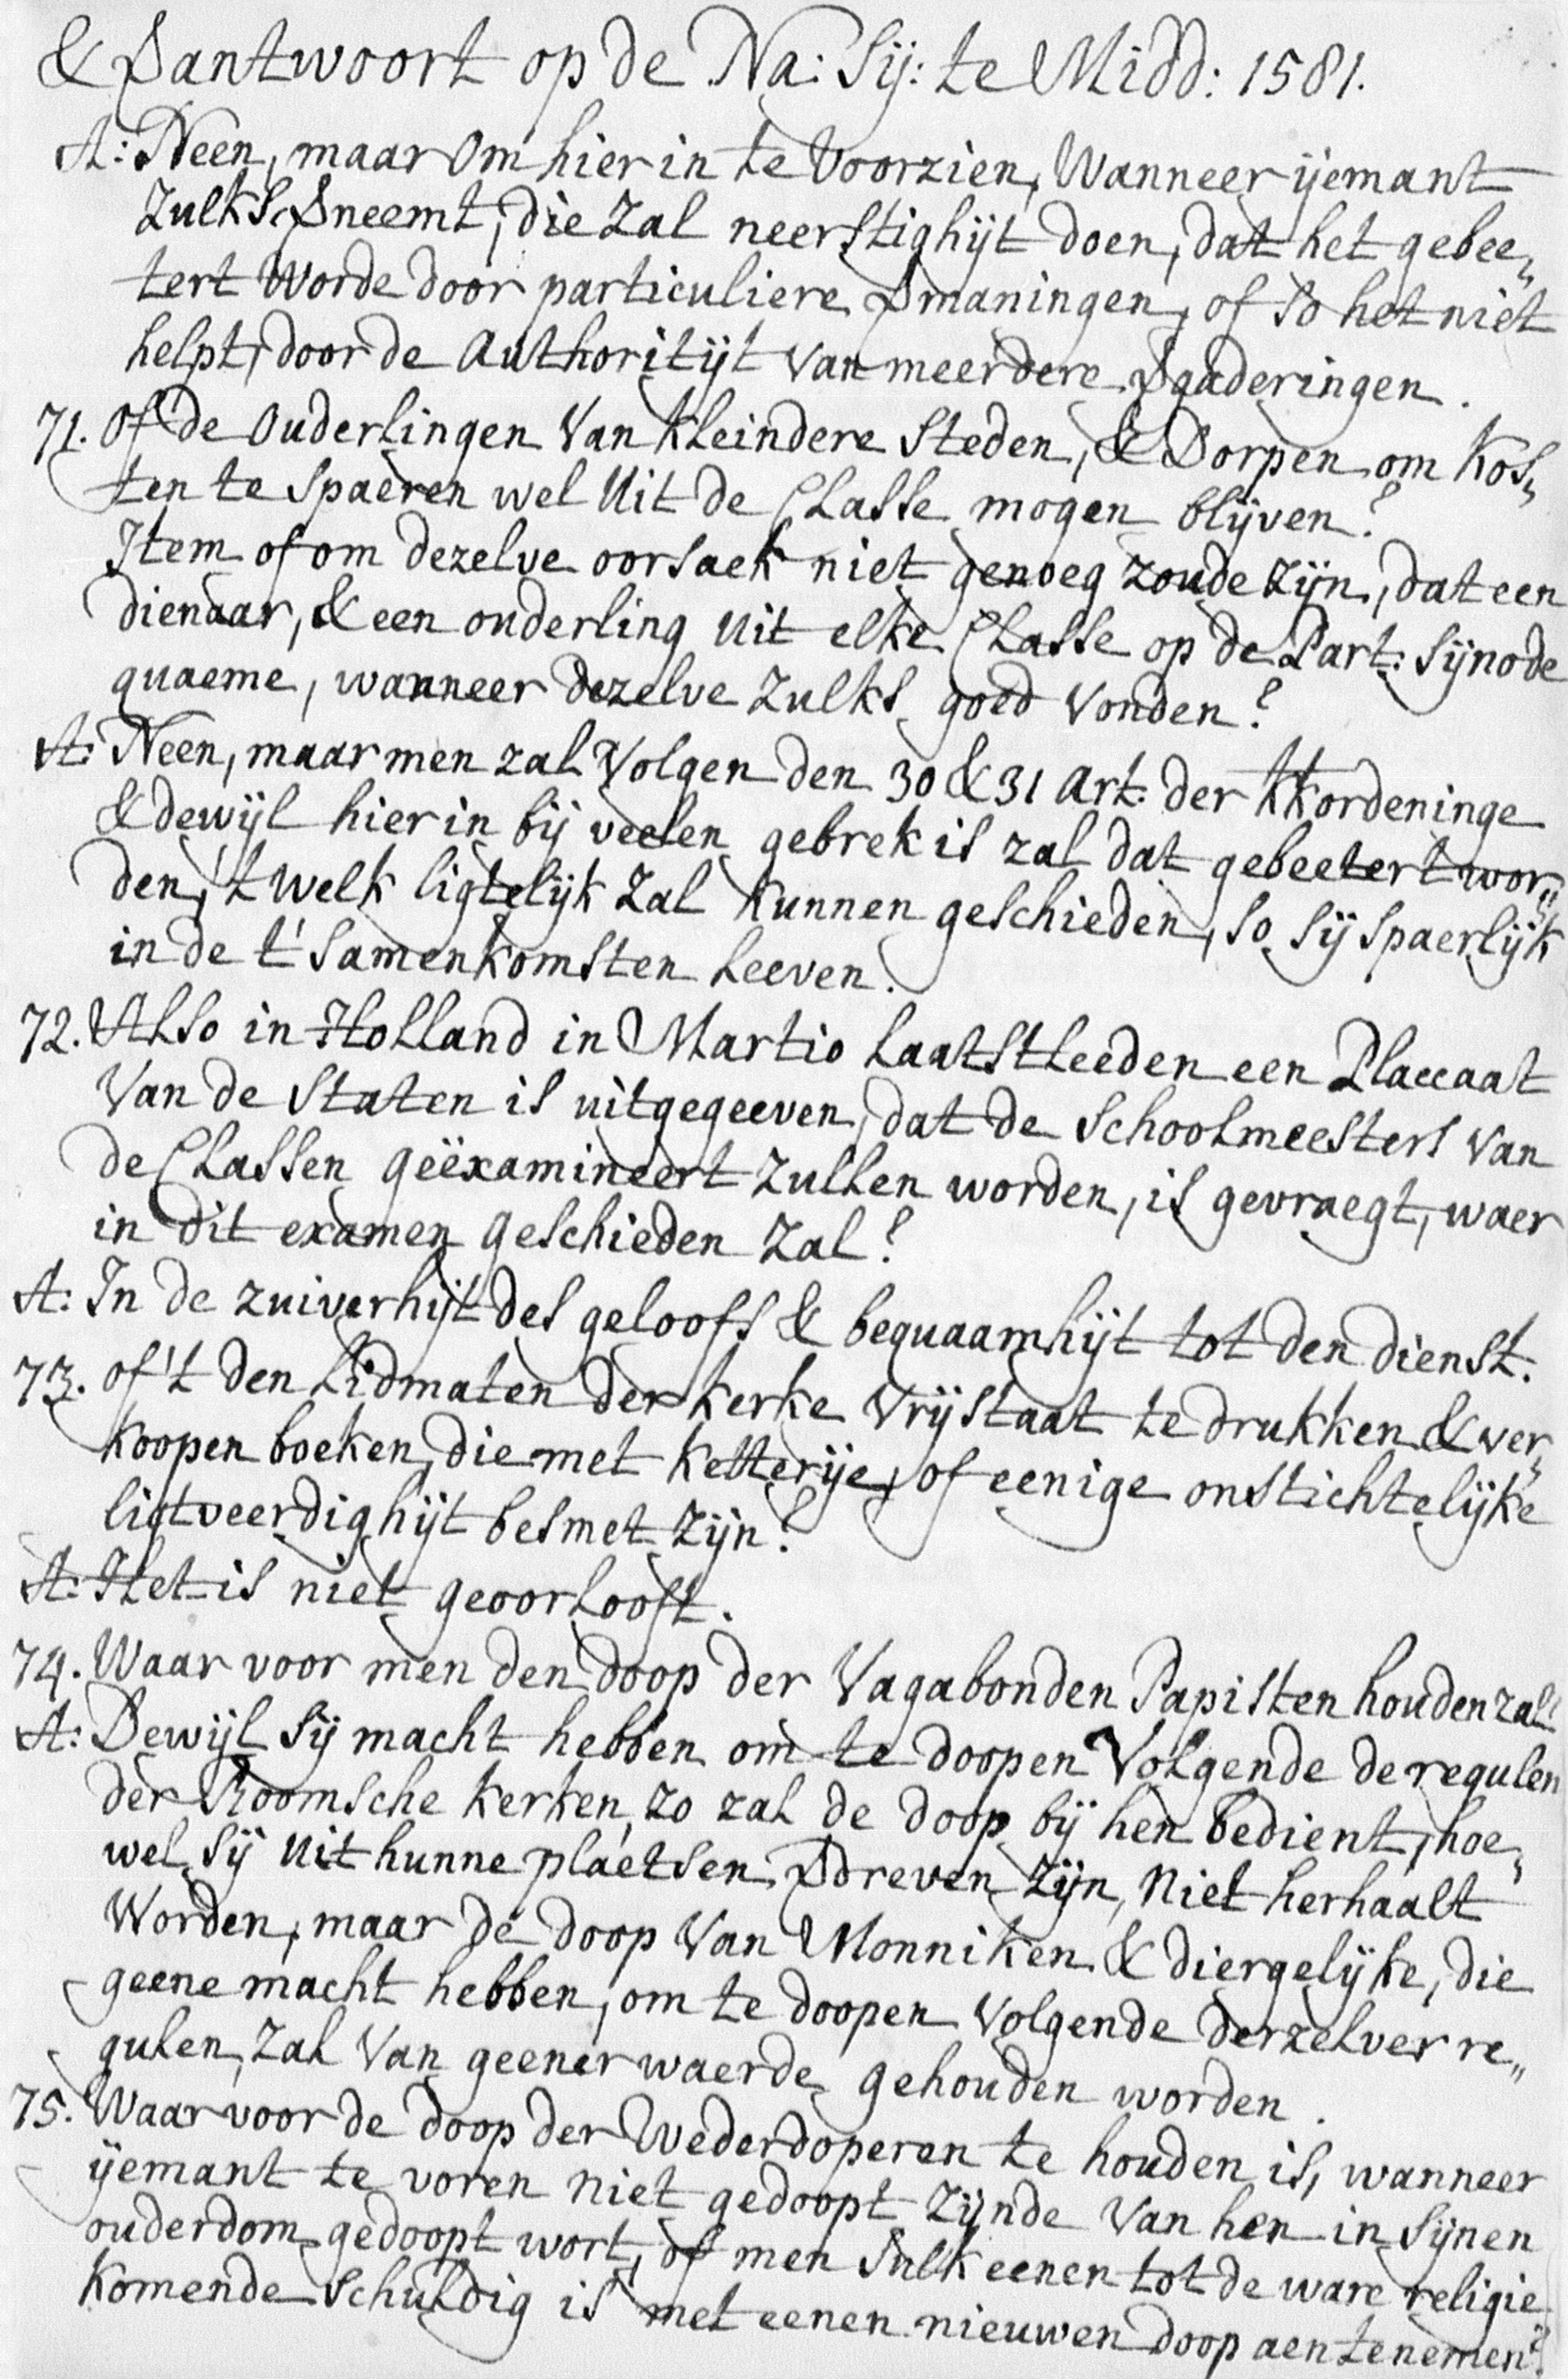 & Vantwoort op de Na: Sij: te Midd: 1581.
A: Neen, maar om hier in te voorzien, Wanneer ijemant
Zulks Vneemt, die Zal neerstighijt doen, dat het gebee„
tert Worde door particuliere Vmaningen, of so het niet
helpt, door de Authoritijt van meerdere Vgaderingen.
71. Of de Ouderlingen Van Kleindere Steden, & Dorpen om Kos„
ten te Spaeren wel Uit de Classe mogen blijven?
Item of om dezelve oorsaek niet genoeg zoude Zijn, dat een
dienaar, & een ouderling uit elke Classe op de Part: Sijnode
quaeme, wanneer dezelve Zulks goed vonden?
A: Neen, maar men zal Volgen den 30 & 31 Art: der KKordeninge
& dewijl hier in bij veelen gebrek is zal dat gebeetert wor„
den, 't welk ligtelijk Zal Kunnen geschieden, so sij spaerlijk
in de t'samenkomsten leeven.
72. Also in Holland in Martio laatstleeden een Placcaat
Van de Staten is uitgegeeven, dat de Schoolmeesters van
de Classen geëxamineert Zullen worden, is gevraegt, waer
in dit examen geschieden Zal?
A: In de zuiverhijt des geloofs & bequaamhijt tot den dienst.
73. of 't den Lidmaten der Kerke Vrij staat te drukken & ver„
koopen boeken, die met Ketterije, of eenige onstichtelijke
ligtveerdighijt besmet Zijn?
A: Het is niet geoorlooft.
74. Waar voor men den doop der Vagabonden Papisten houden zal?
A: Dewijl Sij macht hebben om te doopen Volgende de regulen
der Roomsche Kerken, zo zal de doop bij hen bedient, hoe„
wel Sij Uit hunne plaetsen Vdreven Zijn, Niet herhaalt
Worden, maar de doop Van Monniken & diergelijke, die
geene macht hebben, om te doopen Volgende derzelver re„
gulen, Zal Van geener waerde gehouden worden.
75. Waar voor de doop der Wederdoperen te houden is, wanneer
ijemant te voren niet gedoopt Zijnde Van hen in Sijnen
ouderdom gedoopt wort, of men Sulk eenen tot de ware religie
Komende Schuldig is met eenen nieuwen doop aen te nemen?